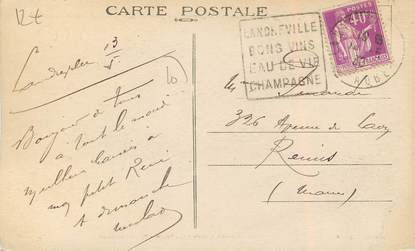 12€
CARTE POSTALE
LANDREVILLE
BONS VINS
EAU DE VIE
CHAMPAGNE
POSTES
40c
AUBE
10
Landreville 13
Bonjour à tous
à tout le monde
meilleurs baisers à
mon petit René
à dimanche
M
326 Avenue de Laon
Reims
(Marne)